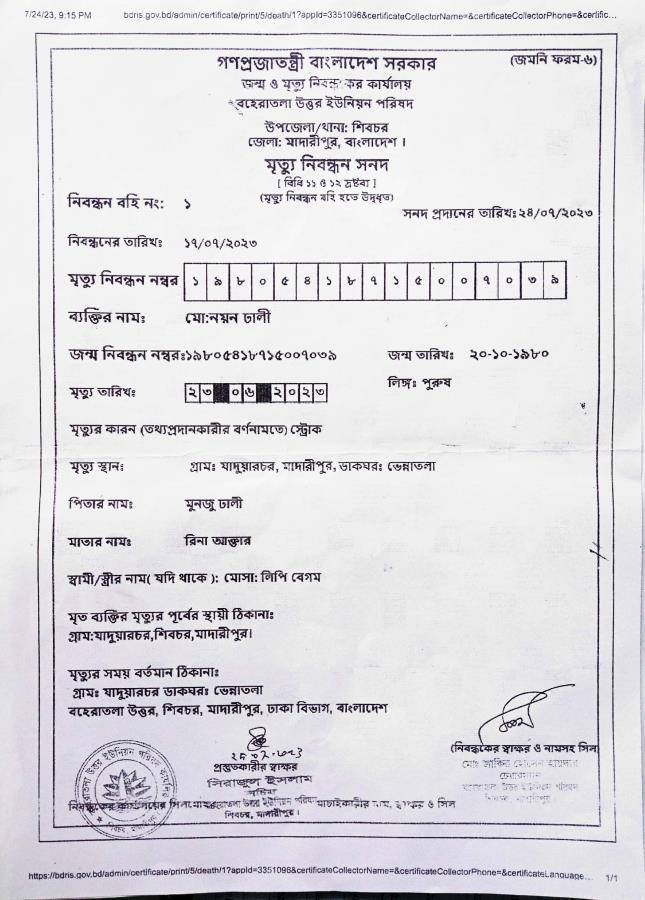 7/24/23, 9:15 PM bdris.gov.bd/admin/certificate/print/5/death/1?appId=3351096&certificateCollectorName=&certificateCollectorPhone=&certific...
গণপ্রজাতন্ত্রী বাংলাদেশ সরকার
(জমনি ফরম-৬)
জন্ম ও মৃত্যু নিবন্ধকের কার্যালয়
বহেরাতলা উত্তর ইউনিয়ন পরিষদ
উপজেলা/থানা: শিবচর
জেলা: মাদারীপুর, বাংলাদেশ ।
মৃত্যু নিবন্ধন সনদ
[ বিধি ১১ ও ১২ দ্রষ্টব্য ]
(মৃত্যু নিবন্ধন বহি হতে উদ্ধৃত)
নিবন্ধন বহি নং: ১
সনদ প্রদানের তারিখ:২৪/০৭/২০২৩
নিবন্ধনের তারিখঃ ১৭/০৭/২০২৩
মৃত্যু নিবন্ধন নম্বর ১ ৯ ৮ ০ ৫ ৪ ১ ৮ ৭ ১ ৫ ০ ০ ৭ ০ ৩ ৯
ব্যক্তির নামঃ মো:নয়ন ঢালী
জন্ম নিবন্ধন নম্বর:১৯৮০৫৪১৮৭১৫০০৭০৩৯ জন্ম তারিখঃ ২০-১০-১৯৮০
মৃত্যু তারিখঃ ২৩ ০৬ ২০২৩ লিঙ্গঃ পুরুষ
মৃত্যুর কারন (তথ্যপ্রদানকারীর বর্ণনামতে) স্ট্রোক
মৃত্যু স্থানঃ গ্রামঃ যাদুয়ারচর, মাদারীপুর, ডাকঘরঃ ভেন্নাতলা
পিতার নামঃ মুনজু ঢালী
মাতার নামঃ রিনা আক্তার
স্বামী/স্ত্রীর নাম( যদি থাকে ): মোসা: লিপি বেগম
মৃত ব্যক্তির মৃত্যুর পূর্বের স্থায়ী ঠিকানাঃ
গ্রাম:যাদুয়ারচর,শিবচর,মাদারীপুর।
মৃত্যুর সময় বর্তমান ঠিকানাঃ
গ্রামঃ যাদুয়ারচর ডাকঘরঃ ভেন্নাতলা
বহেরাতলা উত্তর, শিবচর, মাদারীপুর, ঢাকা বিভাগ, বাংলাদেশ
প্রস্তুতকারীর স্বাক্ষর
(নিবন্ধকের স্বাক্ষর ও নামসহ সিল)
সিরাজুল ইসলাম
চেয়ারম্যান
যাচাইকারীর নাম, স্বাক্ষর ও সিল
শিবচর, মাদারীপুর।
https://bdris.gov.bd/admin/certificate/print/5/death/1?appId=3351096&certificateCollectorName=&certificateCollectorPhone=&certificateLanguage... 1/1